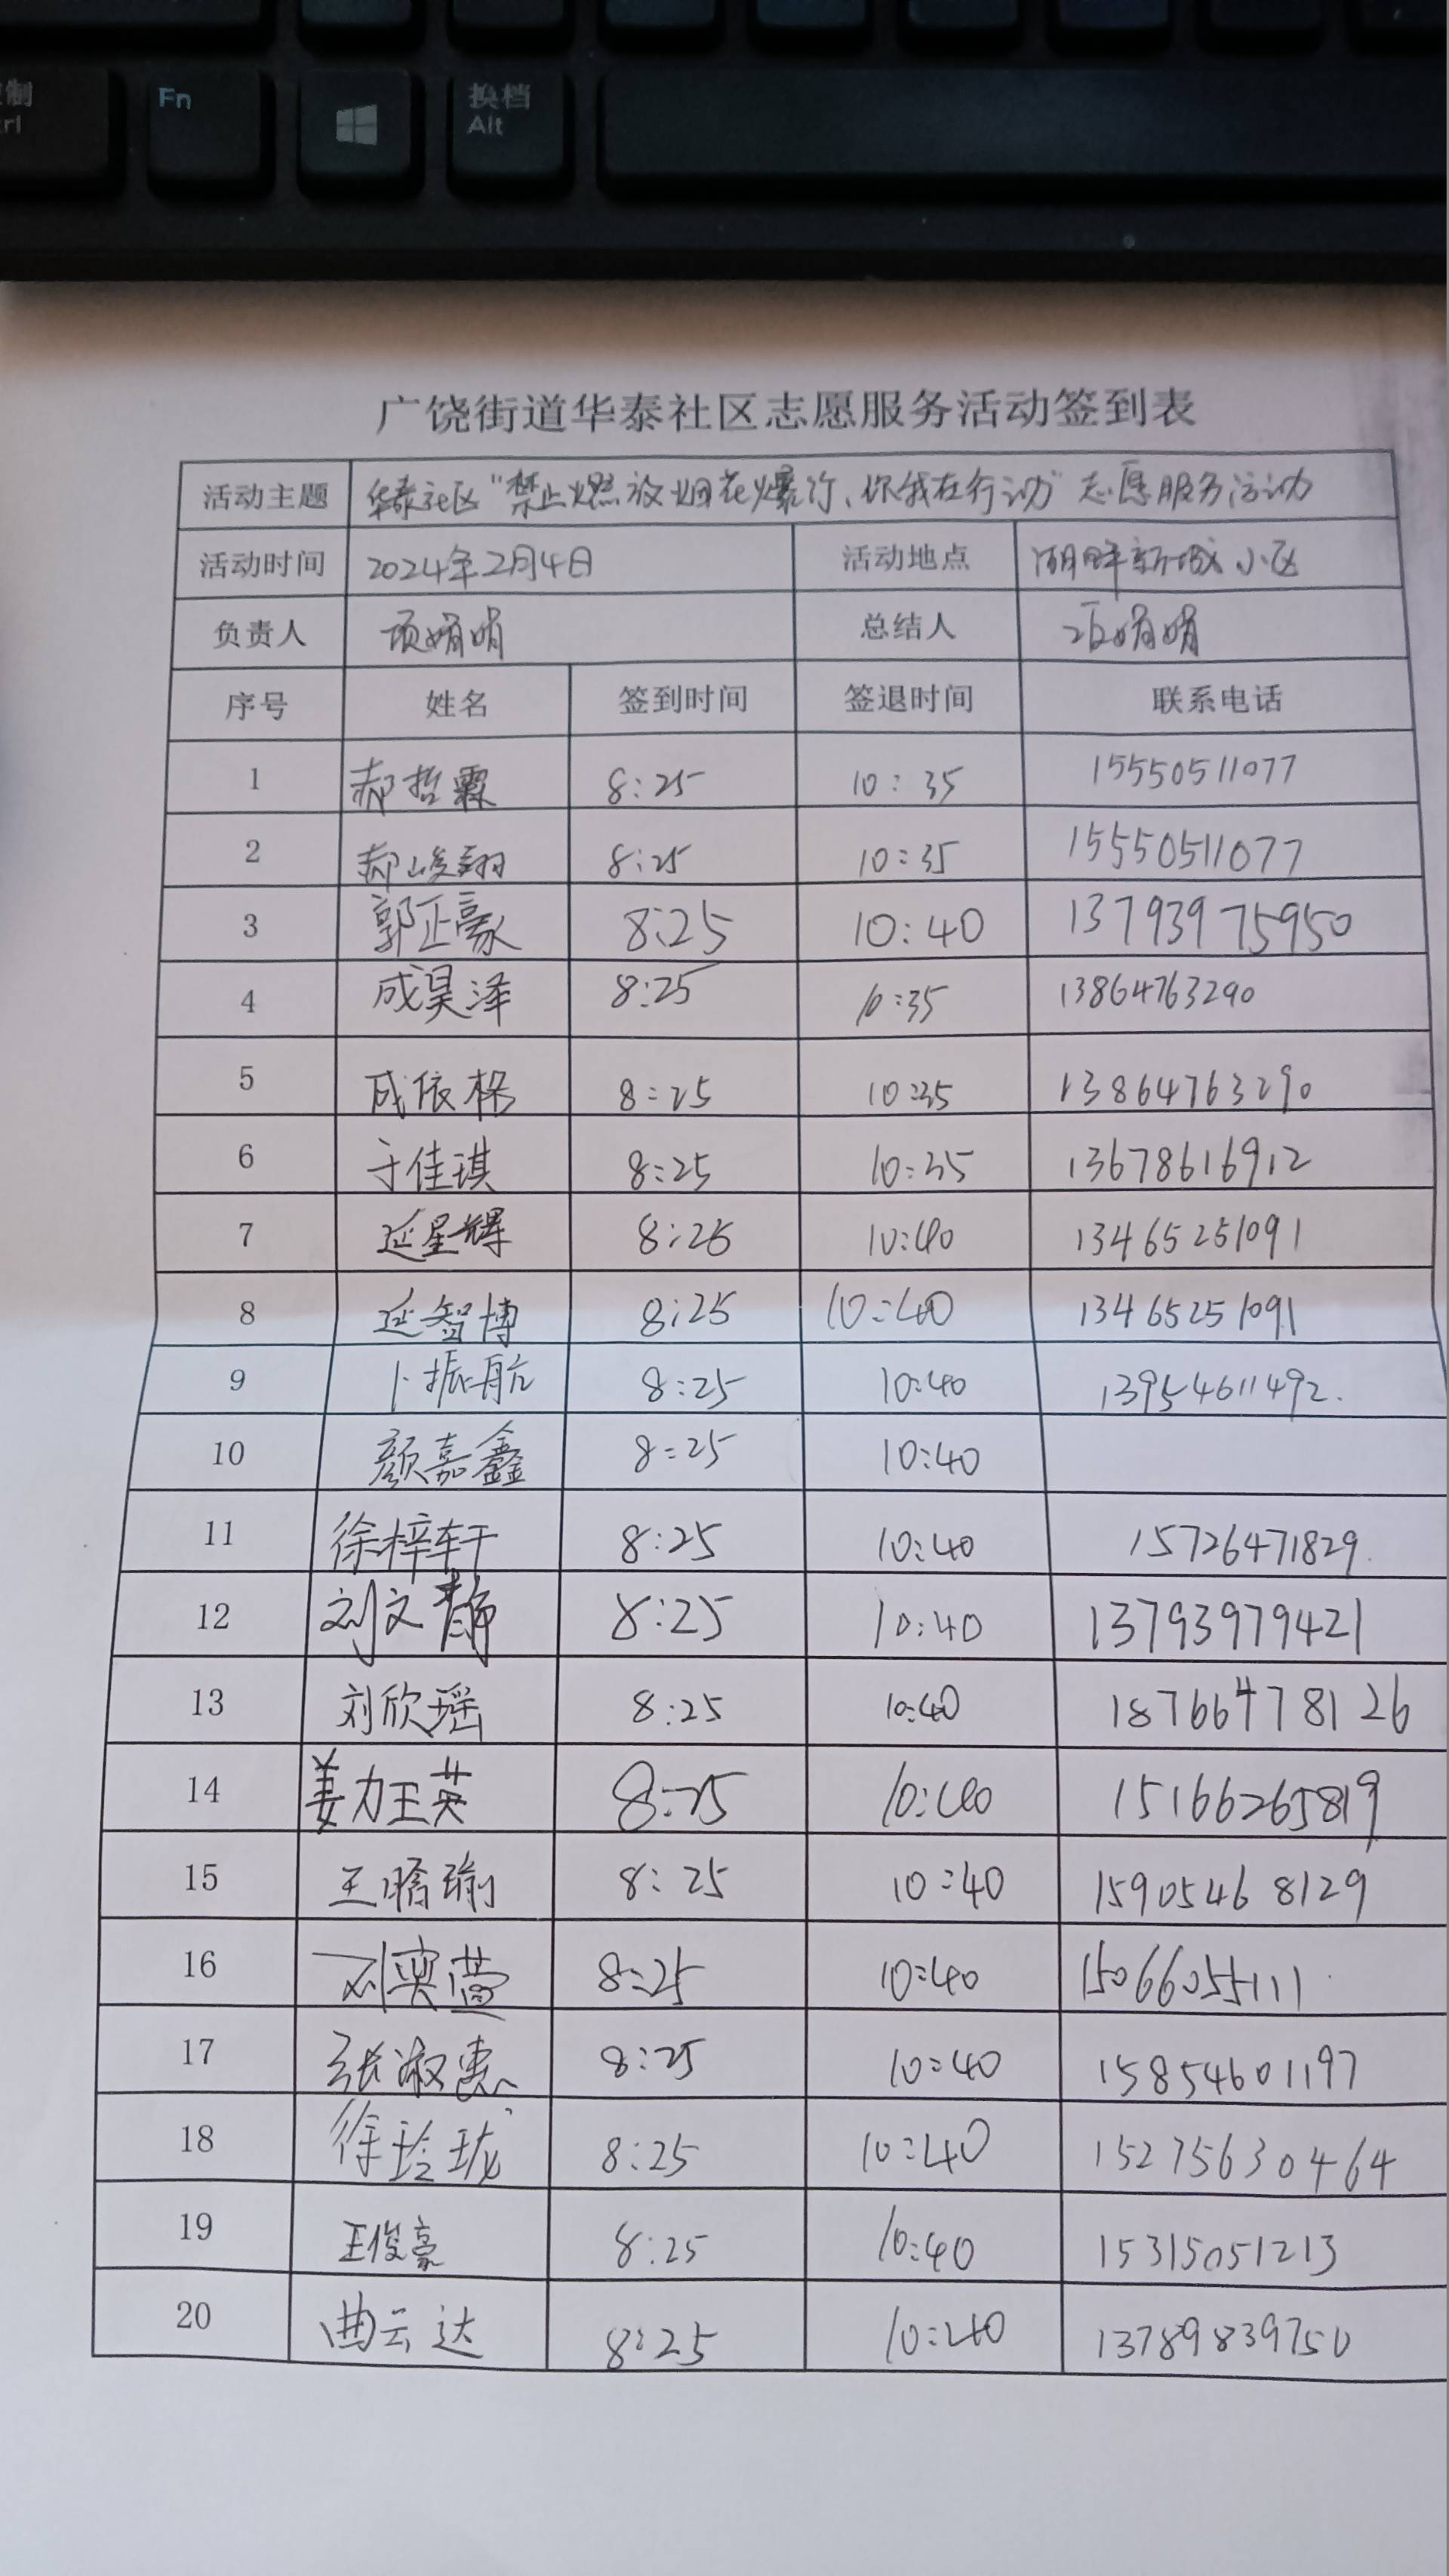 制
rl
Fn
换档
Alt
广饶街道华泰社区志愿服务活动签到表
活动主题 华泰社区“禁止燃放烟花爆竹、你我在行动”志愿服务活动
活动时间 2024年2月4日 活动地点 湖畔新城小区
负责人 项娟娟 总结人 项娟娟
序号 姓名 签到时间 签退时间 联系电话
1 郝哲霖 8:25 10:35 15550511077
2 郝峻翔 8:25 10:35 15550511077
3 郭正豪 8:25 10:40 13793975950
4 成昊泽 8:25 10:35 13864763290
5 成依 8:25 10:35 13864763290
6 于佳琪 8:25 10:35 13678616912
7 延星辉 8:25 10:40 13465251091
8 延智博 8:25 10:40 13465251091
9 卜振航 8:25 10:40 13954611492.
10 颜嘉鑫 8:25 10:40
11 徐梓轩 8:25 10:40 15726471829
12 刘文静 8:25 10:40 13793979421
13 刘欣瑶 8:25 10:40 18766478126
14 姜力王英 8:25 10:40 15166265819
15 王瑜 8:25 10:40 15905468129
16 刘奕 8:25 10:40 15066055111
17 张淑惠 8:25 10:40 15854601197
18 徐玲珑 8:25 10:40 15275630464
19 王俊豪 8:25 10:40 15315051213
20 曲云达 8:25 10:40 13789839750